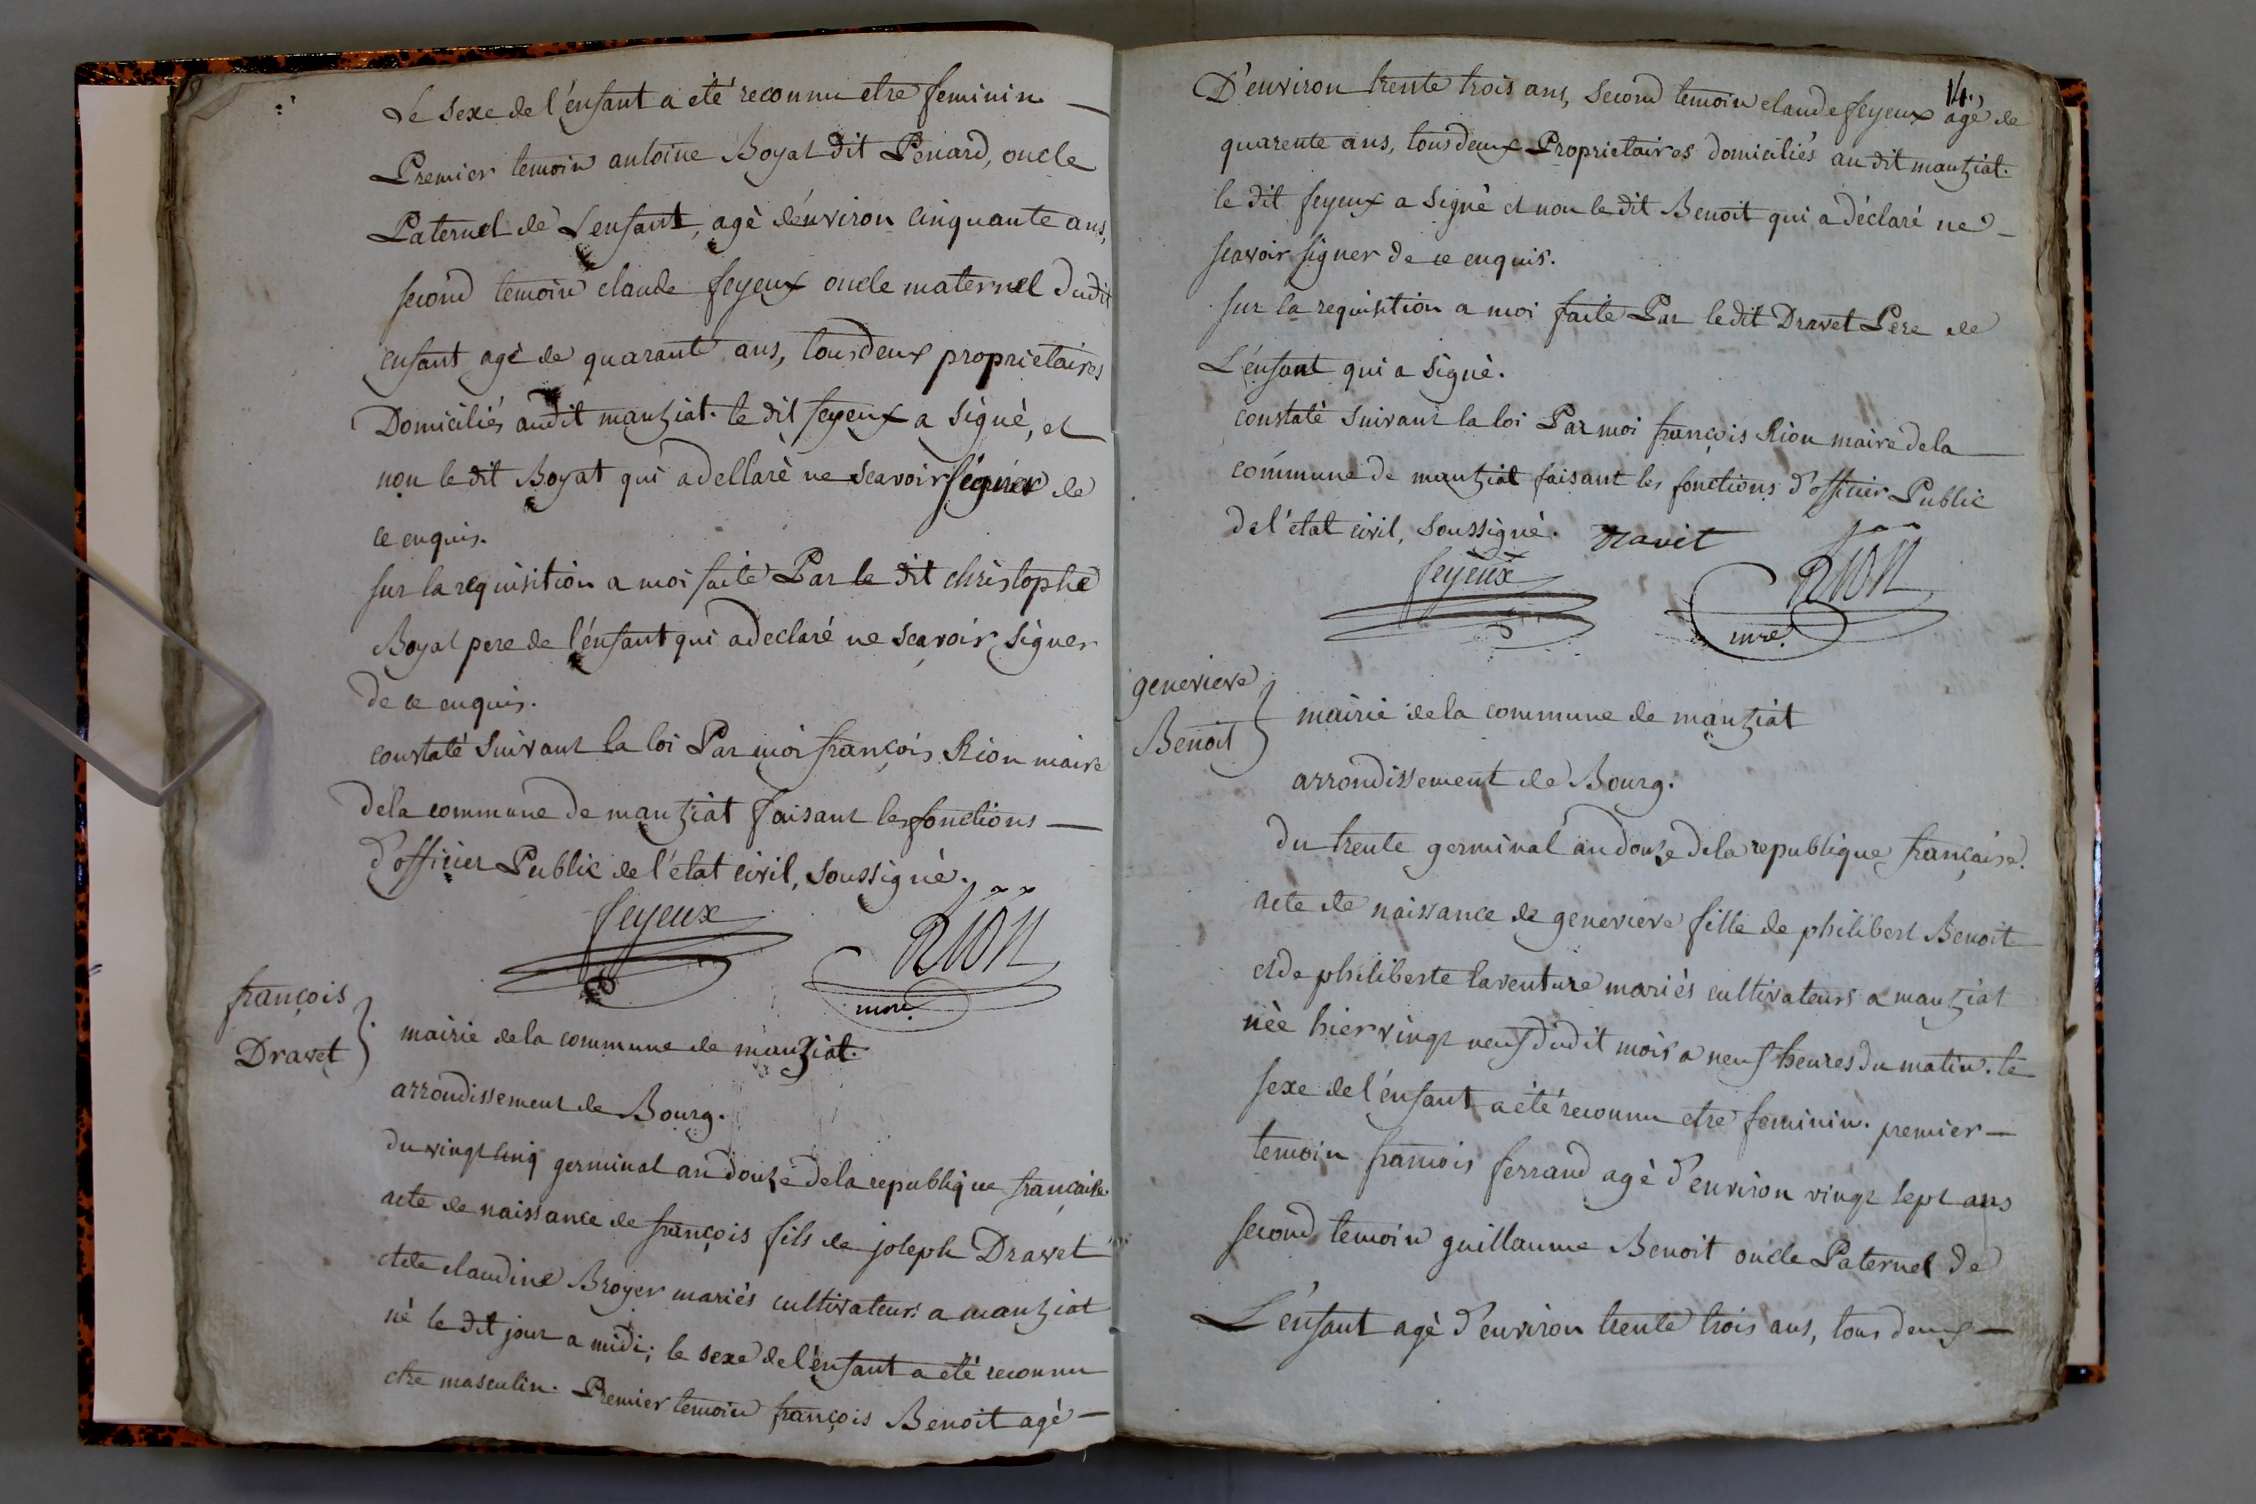 Le sexe de l'énfant a été reconnu etre feminin —
Premier temoin antoine Boyat dit Penard, oncle
Paternel de L'enfant, agè d'énviron cinquante ans,
second temoin claude feyeux oncle maternel dudit
enfant agé de quarante ans, tous deux proprietaires
Domiciliés audit mantziat. le dit feyeux a signè, et
non le dit Boyat qui a dellarè ne scavoir signer de
ce enquis.
sur la requisition a moi faite Par le dit christophe
Boyat pere de l'énfant qui a declaré ne scavoir signer
de ce enquis.
constaté suivant la loi Par moi françois Rion maire
de la commune de mantziat faisant les fonctions —
d'officier Public de l'état civil, soussignè.
feyeux
Rion
mre.
françois
Dravet
mairie de la commune de mantziat.
arrondissement de Bourg.
du vingt cinq germinal an douze de la republique française
acte de naissance de françois fils de joseph Dravet
et de claudine Broyer mariés cultivateurs a mantziat
nè le dit jour a midi; le sexe de l'énfant a été reconnu
etre masculin. Premier temoin françois Benoit agè —
14.
D'environ trente trois ans, second temoin claude feyeux agé de
quarente ans, tous deux Proprietaires domiciliés au dit mantziat.
le dit feyeux a signè et non le dit Benoit qui a déclaré ne —
scavoir signer de ce enquis.
sur la requisition a moi faite Par le dit Dravet Pere de
L'énfant qui a signè.
constatè suivant la loi Par moi françois Rion maire de la —
commune de mantziat faisant les fonctions d'officier Public
de l'état civil, soussigné. Travet
feyeux
Rion
mre.
genevieve
Benoit
mairie de la commune de mantziat
arrondissement de Bourg.
du trente germinal an douze de la republique française.
acte de naissance de genevieve fille de philibert Benoit
et de philiberte laventure mariés cultivateurs a mantziat
née hier vingt neuf dudit mois a neuf heures du matin. le
sexe de l'énfant a été reconnu etre feminin. premier —
temoin francois ferrand agè d'environ vingt sept ans
second temoin guillaume Benoit oncle Paternel de
L'énfant agè d'environ trente trois ans, tous deux —